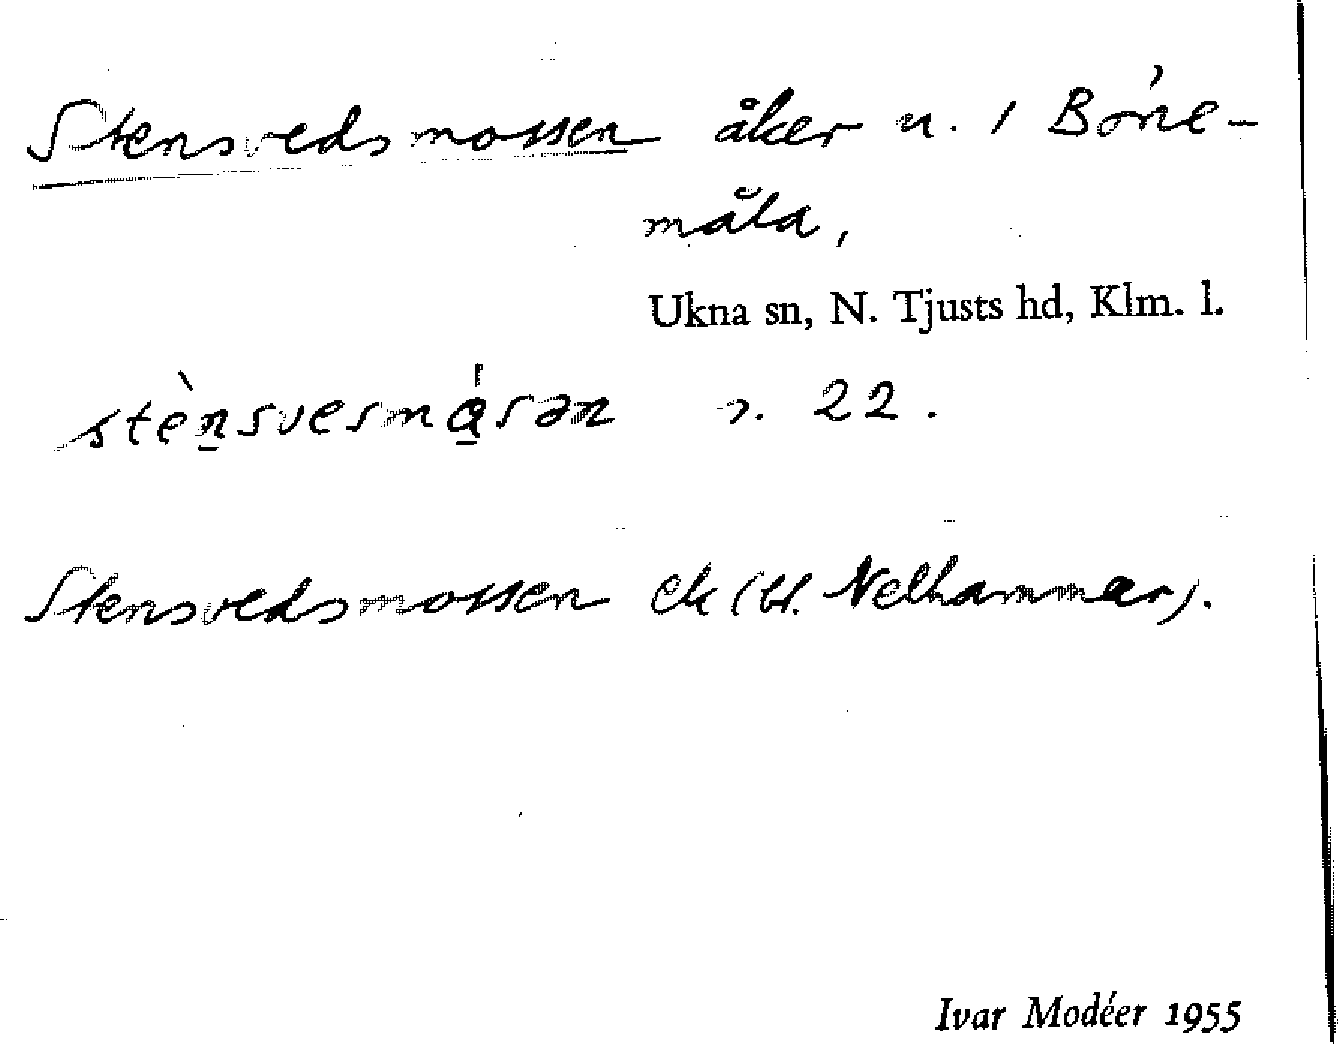 Stensvedsmossen åker u. 1 Börne-
måla,
Ukna sn, N. Tjusts hd, Klm. l.
stènsvesmásən 22.
Stensvedsmossen ek (bl. Nelhammar).
Ivar Modéer 1955